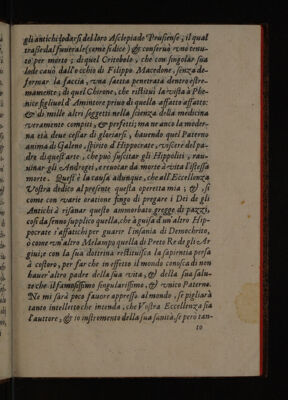 gli antichi lodarsi del loro Asclepiade Prusiense; il qual
trasse dal funerale (come si dice) & conseruò vno tenu-
to per morto; di quel Critobolo, che con singolar sua
lode cauò dall'occhio di Filippo Macedone, senza de-
formar la faccia, vna saetta penetrata dentro estre-
mamente; di quel Chirone, che restituì la vista à Phe-
nice figliuol d'Amintore priuo di quella affatto affatto;
& di mille altri soggetti nella scienza della medicina
veramente compiti, & perfetti; ma ne anco la moder-
na età deue cessar di gloriarsi, hauendo quel Paterno
anima di Galeno, spirito di Hippocrate, viscere del pa-
dre di quest'arte, che può suscitar gli Hippoliti, rau-
uiuar gli Androgei, e reuocar da morte à vita l'istessa
morte. Quest'è la causa adunque, che all'Eccellenza
Vostra dedico al presente questa operetta mia; &, si
come con varie oratione fingo di pregare i Dei de gli
Antichi à risanar questo ammorbato gregge di pazzi,
così da senno supplico quella, che à guisa d'un altro Hip-
pocrate s'affatichi per guarir l'insania di Democrito,
ò come vn'altro Melampo quella di Preto Re de gli Ar-
giui; e con la sua dottrina restituisca la sapientia persa
à costoro, per far che in effetto il mondo conosca di non
hauer'altro padre della sua vita, & della sua salu-
te che il famosissimo singularissimo, & vnico Paterno.
Ne mi sarà poco fauore appresso al mondo, se pigliarà
tanto intelletto che intenda, che Vostra Eccellenza sia
l'auttore, & io instromento della sua sanità, se però tan-
to